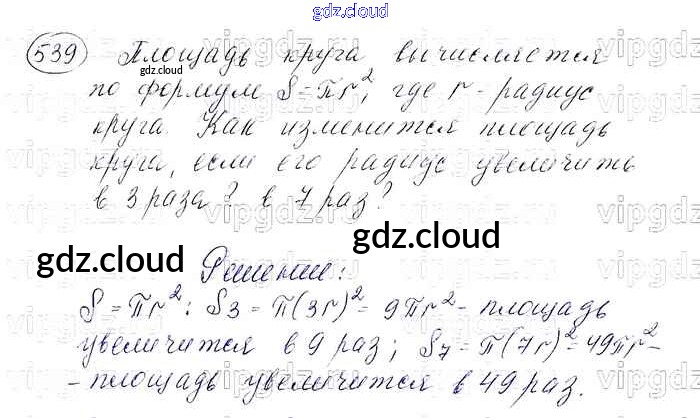 gdz.cloud
539 Площадь круга вычисляется
gdz.cloud
по формуле S=πr², где r - радиус
круга. Как изменится площадь
круга, если его радиус увеличить
в 3 раза? в 7 раз?
gdz.cloud
gdz.cloud
Решение:
S = πr²; S₃ = π(3r)² = 9πr² - площадь
увеличится в 9 раз; S₇ = π(7r)² = 49πr² -
- площадь увеличится в 49 раз.
vipgdz.ru